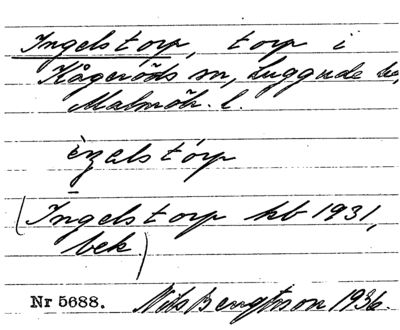 Ingelstorp, torp i
Kågeröds sn, Luggude hd,
Malmöh. l.
èŋalstórp
(Ingelstorp kb 1931,
bek.)
Nr 5688. Nils Bengtsson 1936.